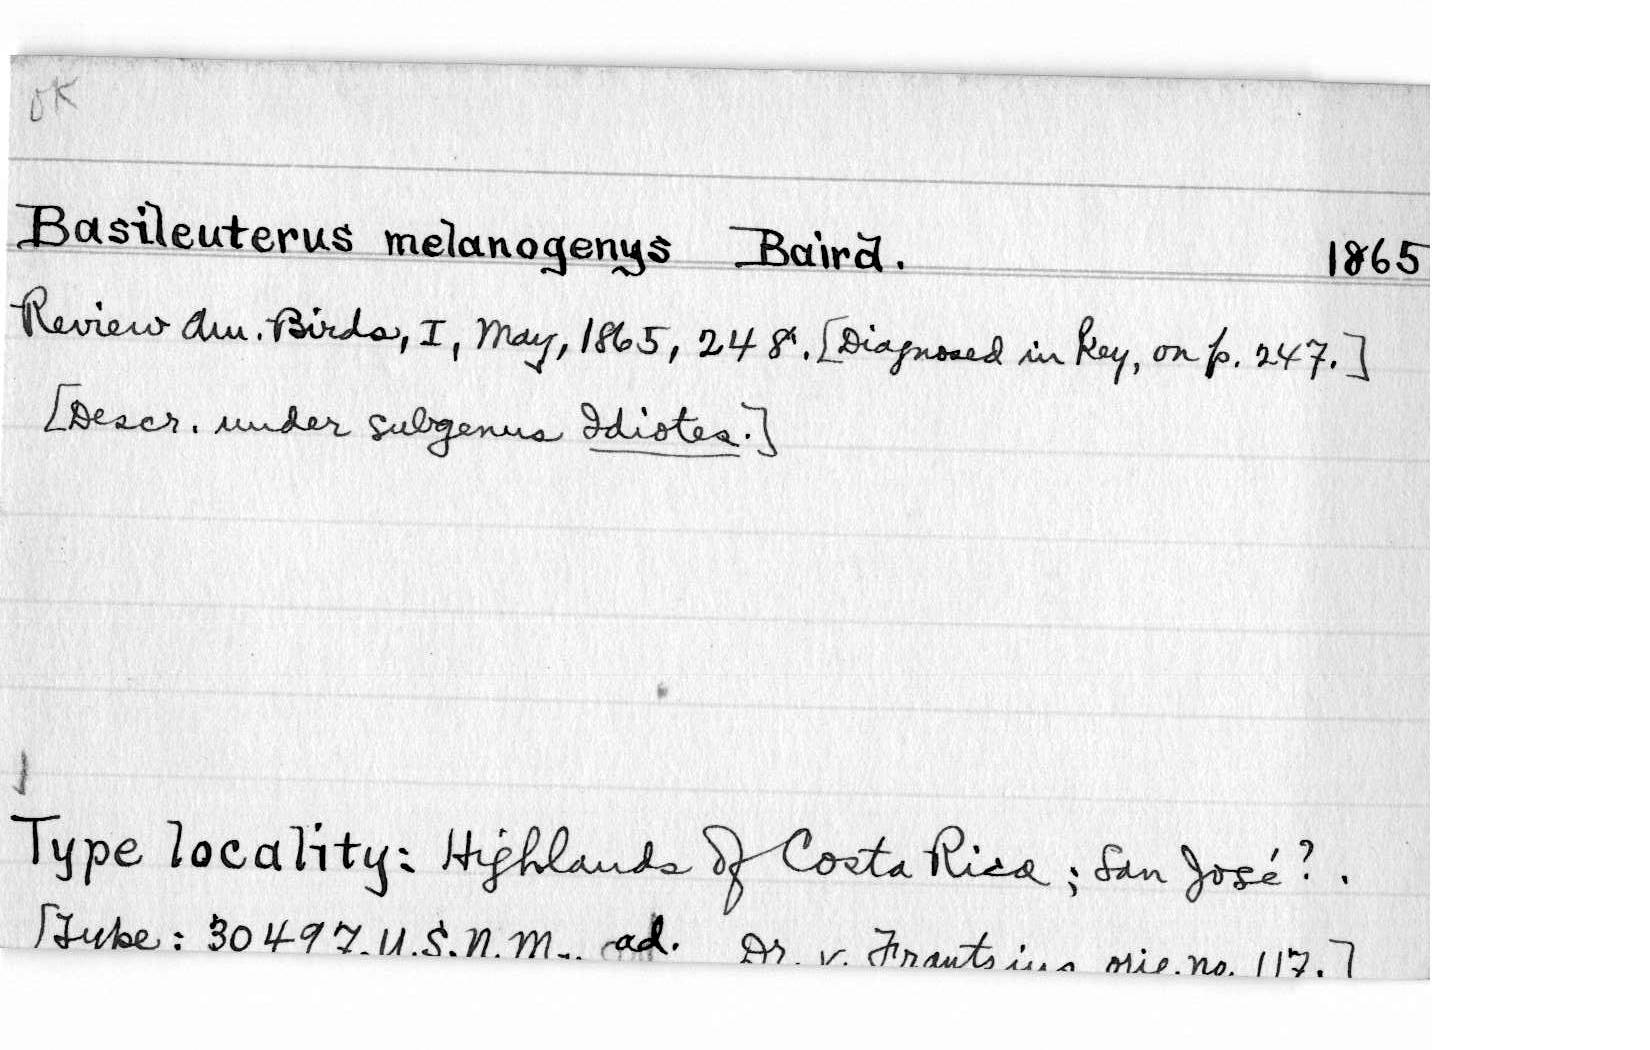 OK
Basileuterus melanogenys Baird. 1865
Review Am. Birds, I, May, 1865, 248. [Diagnosed in key, on p. 247.]
[Descr. under subgenus Idiotes.]
Type locality: Highlands of Costa Rica; San José?.
[Type: 30497. U.S.N.M., ad. Dr. v. Frantzius orig. no. 117.]